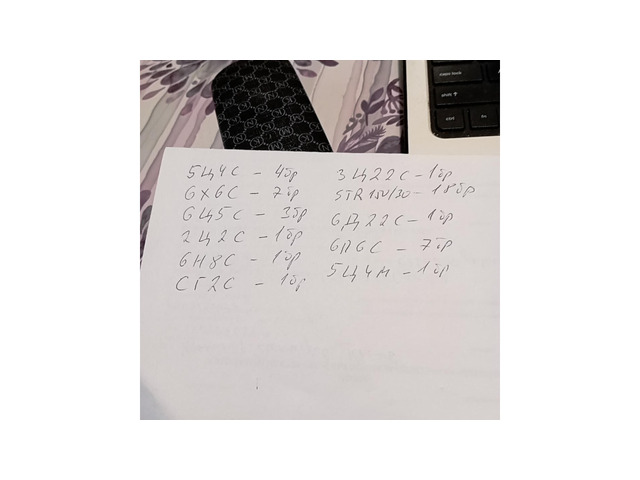 5Ц4С – 4бр
6Х6С – 7бр
6Ц5С – 3бр
2Ц2С – 1бр
6Н8С – 1бр
СГ2С – 1бр
3Ц22С – 1бр
STR150/30 – 18бр
6Д22С – 1бр
6П6С – 7бр
5Ц4М – 1бр
caps lock
shift
ctrl
fn